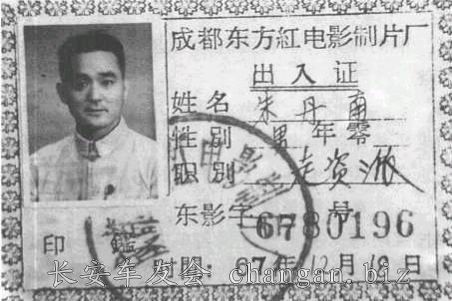 成都东方红电影制片厂
出入证
姓名 朱丹南
性别 男 年零
职别 走资派
东影字 6780196 号
印鉴
时间：67年12月18日
长安车友会 changan.biz